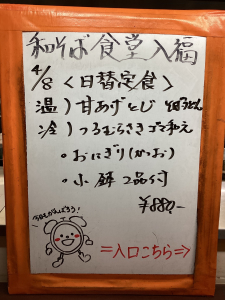 和そば食堂入福
4/8 〈日替定食〉
温) 甘あげとじ
冷) つるむらさきゴマ和え
・おにぎり(かつお)
・小鉢2品付
¥880.-
今日もがんばろう!
=入口こちら⇒